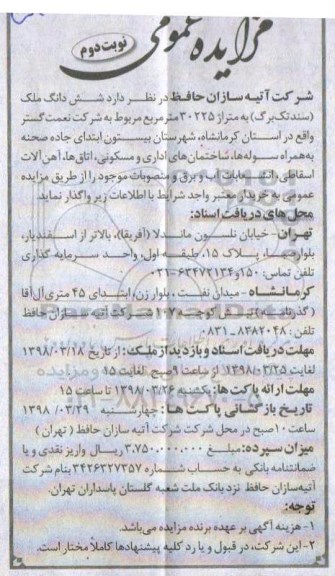 مزایده عمومی
نوبت دوم
شرکت آتیه سازان حافظ در نظر دارد شش دانگ ملک
(سند تک‌برگ) به متراژ ۳۰۲۲۵ مترمربع مربوط به شرکت نعمت گستر
واقع در استان کرمانشاه، شهرستان بیستون ابتدای جاده صحنه
به‌همراه سوله‌ها، ساختمان‌های اداری و مسکونی، اتاق‌ها، آهن آلات
اسقاطی، انشعابات آب و برق و منصوبات موجود را از طریق مزایده
عمومی به خریدار معتبر واجد شرایط با اطلاعات زیر واگذار نماید.
محل‌های دریافت اسناد:
تهران- خیابان نلسون ماندلا (آفریقا)، بالاتر از اسفندیار،
پلاک ۱۵، طبقه اول، واحد سرمایه گذاری
تلفن تماس: ۱۵۰ و ۶۳۴۷۳۱۳۴-۰۲۱
کرمانشاه - میدان نفت، بلوار زن، ابتدای ۴۵ متری آل‌آقا
کوچه ۱۰۷ شرکت آتیه سازان حافظ
تلفن: ۸۳۸۲۰۴۸-۰۸۳۱
مهلت دریافت اسناد و بازدید از ملک: از تاریخ ۱۳۹۸/۰۳/۱۸
لغایت ۱۳۹۸/۰۳/۲۵ از ساعت ۹ صبح لغایت ۱۵
مهلت ارائه پاکت‌ها: یکشنبه ۱۳۹۸/۰۳/۲۶ تا ساعت ۱۵
تاریخ بازگشائی پاکت‌ها: چهارشنبه ۱۳۹۸/۰۳/۲۹
ساعت ۱۰ صبح در محل شرکت شرکت آتیه سازان حافظ (تهران)
میزان سپرده: مبلغ ۳.۷۵۰.۰۰۰.۰۰۰ ریال واریز نقدی و یا
ضمانتنامه بانکی به حساب شماره ۳۴۲۶۳۲۷۳۵۷ بنام شرکت
آتیه‌سازان حافظ نزد بانک ملت شعبه گلستان پاسداران تهران.
توجه:
۱- هزینه آگهی بر عهده برنده مزایده می‌باشد.
۲- این شرکت، در قبول و یا رد کلیه پیشنهادها کاملاً مختار است.